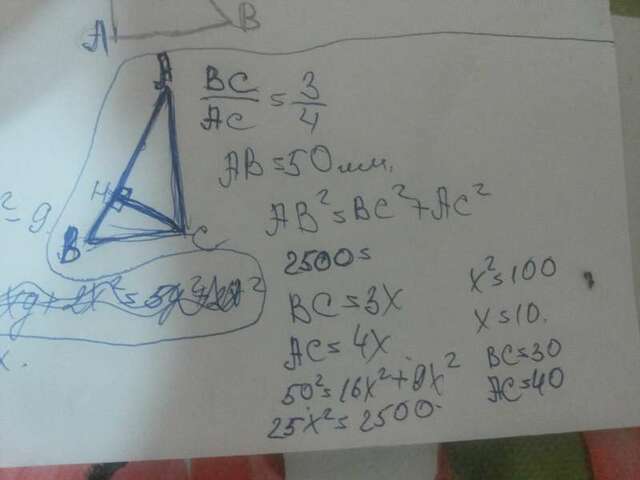 A B
A
BC/AC = 3/4
AB = 50 мм.
H
AB² = BC² + AC²
² = 9
B C
2500 =
BC = 3x
AC = 4x
50² = 16x² + 9x²
25x² = 2500.
x² = 100
x = 10.
BC = 30
AC = 40
x.